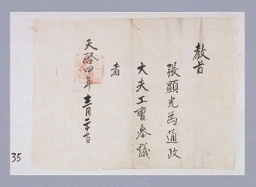 教旨
張顯光爲通政
大夫工曹參議
者
天啓四年三月日
35